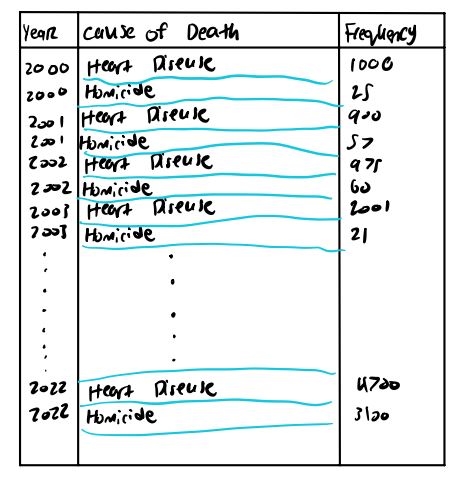 Year cause of Death Frequency
2000 Heart Diseuse 1000
2000 Homicide 25
2001 Heart Diseuse 900
2001 Homicide 57
2002 Heart Diseuse 975
2002 Homicide 60
2003 Heart Diseuse 2001
2003 Homicide 21
2022 Heart Diseuse 4700
2022 Homicide 3100